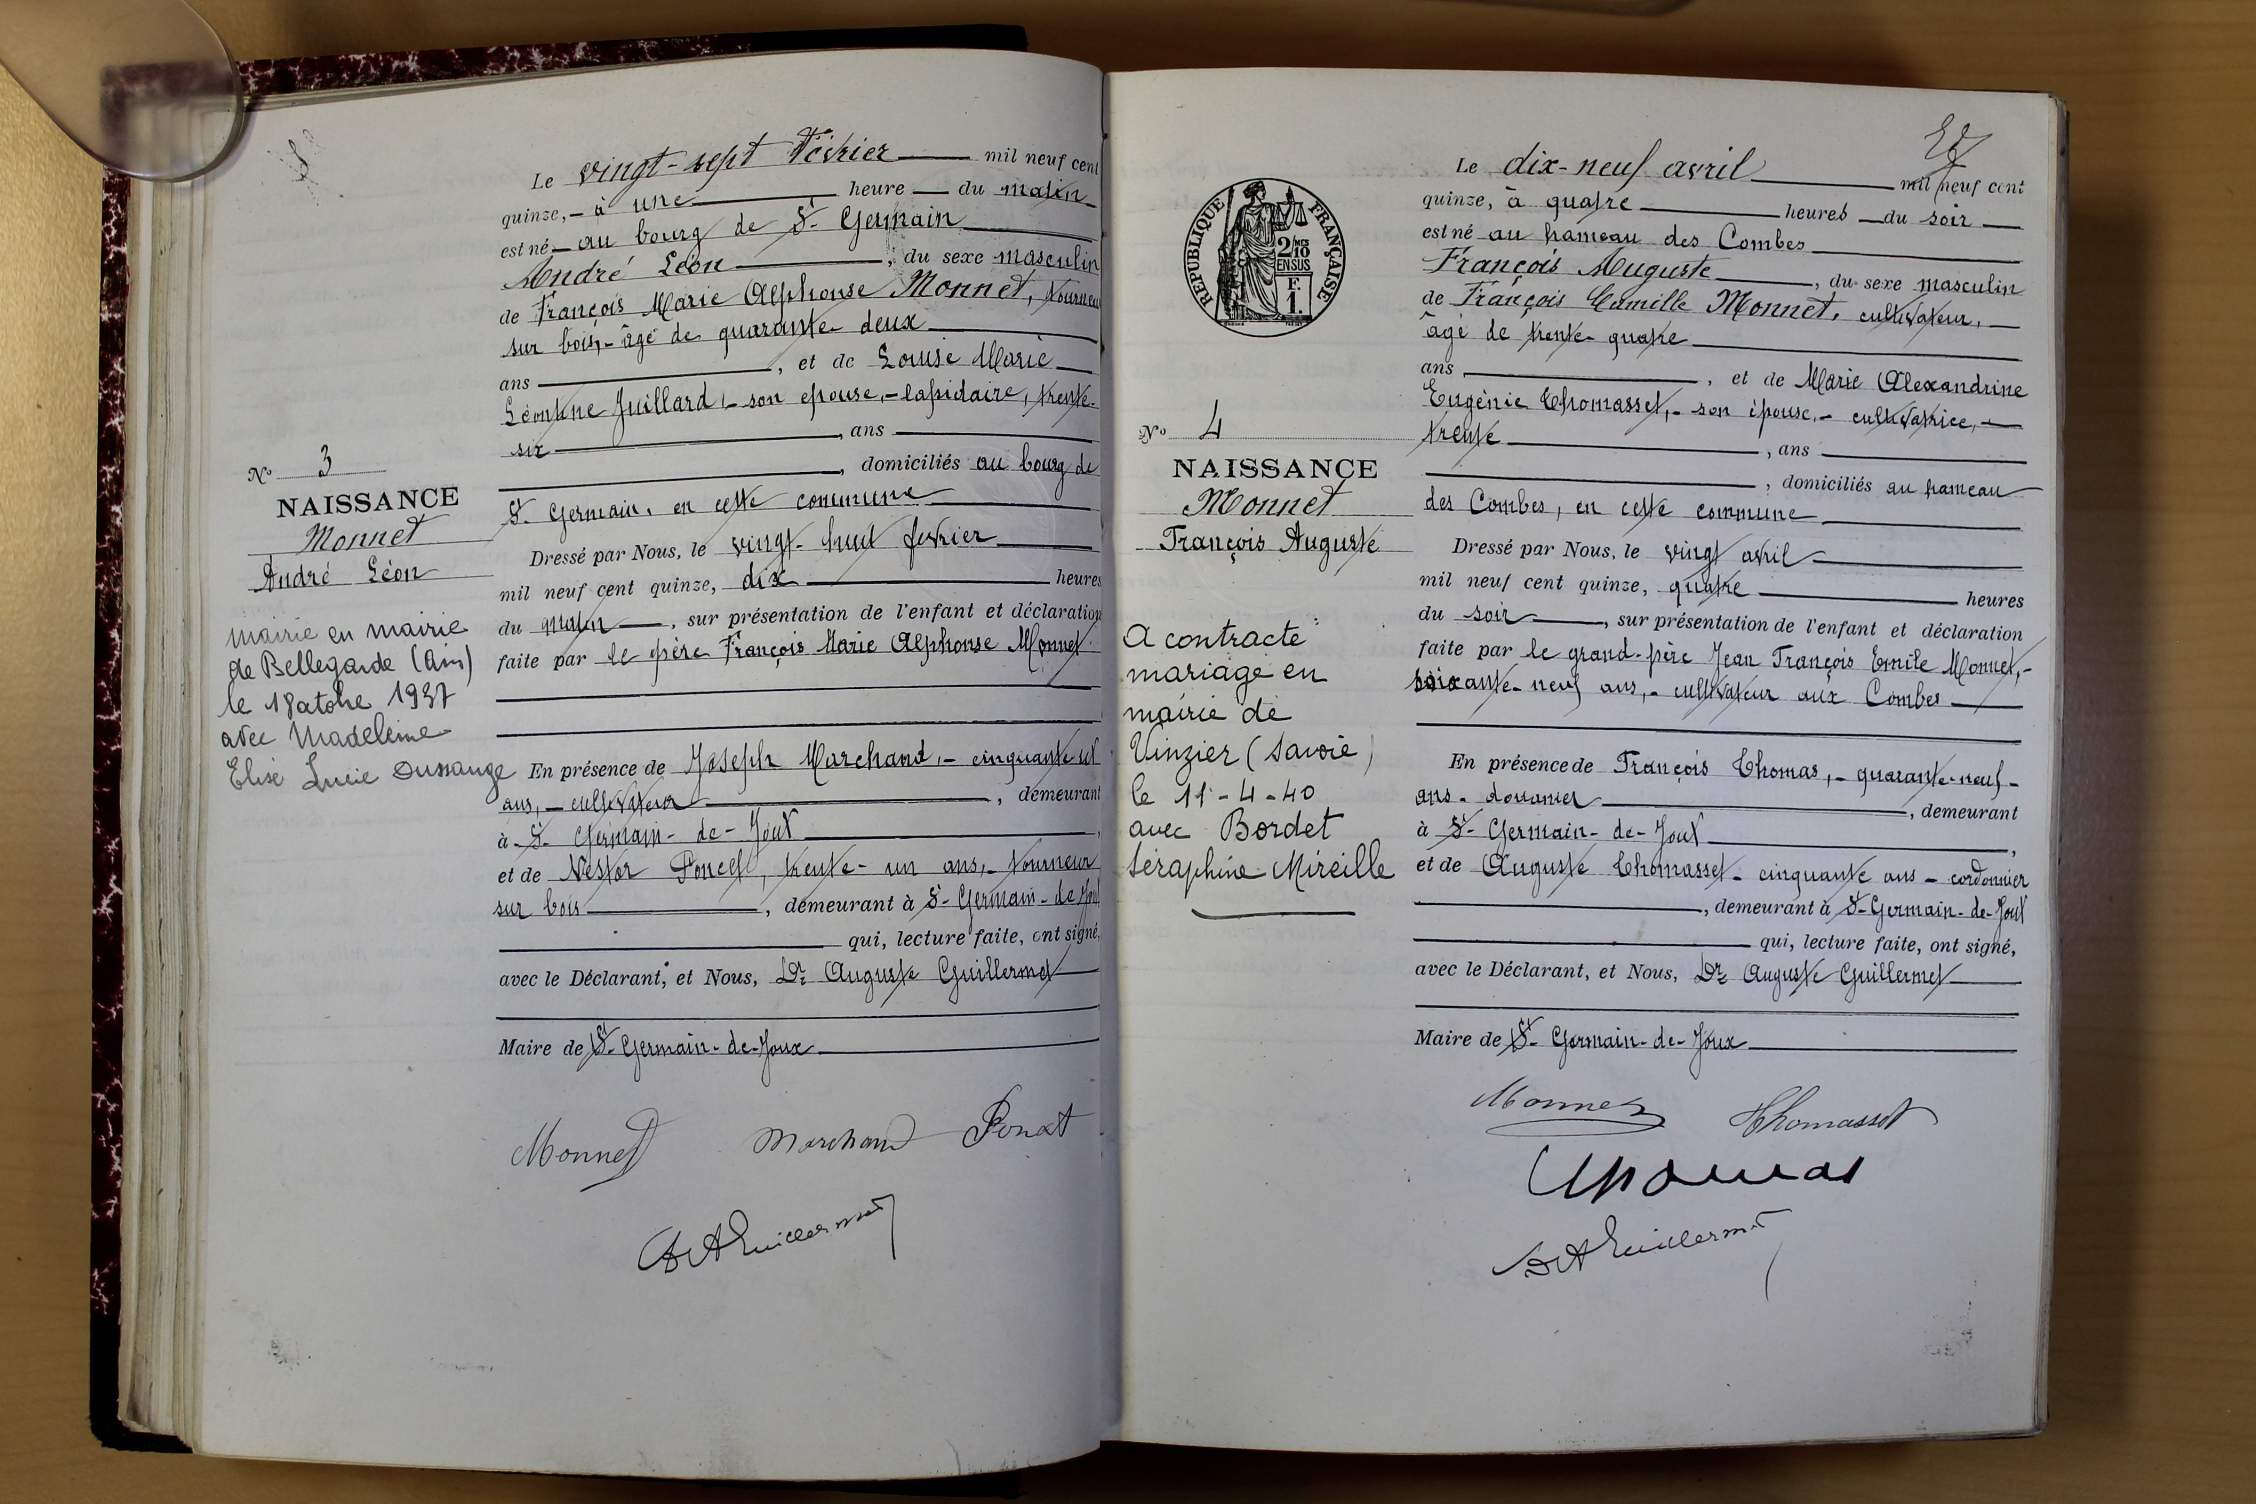 Le vingt-sept Février mil neuf cent
quinze, - à une heure du matin
est né - au bourg de St Germain
André Léon, du sexe masculin
de François Marie Alphonse Monnet, tourneur
sur bois, - âgé de quarante-deux
ans, et de Louise Marie
Léontine Juillard, - son épouse, - lapidaire, trente-
six, ans
, domiciliés au bourg de
St Germain, en cette commune
Dressé par Nous, le vingt-huit février
mil neuf cent quinze, dix heures
du matin, sur présentation de l'enfant et déclaration
faite par le père François Marie Alphonse Monnet
En présence de Joseph Marchand, - cinquante-six
ans, - cultivateur, demeurant
à St Germain-de-Joux,
et de Nestor Poncet, trente-un ans, - tourneur
sur bois, demeurant à St-Germain-de-Joux
qui, lecture faite, ont signé,
avec le Déclarant, et Nous, Dr Auguste Guillermet
Maire de St-Germain-de-Joux
Monnet Marchand Ponat
Dr A Guillermet
No 3
NAISSANCE
Monnet
André Léon
Mairie en mairie
de Bellegarde (Ain)
le 18 1937
avec Madeleine
Elise Lucie Dussauge
No 4
NAISSANCE
Monnet
François Auguste
A contracté
mariage en
mairie de
Vinzier (Savoie)
le 11-4-40
avec Bordet
Séraphine Mireille
REPUBLIQUE FRANÇAISE
2/10 MES
EN SUS
F.
1.
Le dix-neuf avril mil neuf cent
quinze, à quatre heures du soir
est né au hameau des Combes
François Auguste, du sexe masculin
de François Camille Monnet, cultivateur,
âgé de trente-quatre
ans, et de Marie Alexandrine
Eugénie Thomasset, - son épouse, - cultivatrice, -
trente, ans
, domiciliés au hameau
des Combes, en cette commune
Dressé par Nous, le vingt avril
mil neuf cent quinze, quatre heures
du soir, sur présentation de l'enfant et déclaration
faite par le grand-père Jean François Emile Monnet, -
soixante-neuf ans, - cultivateur aux Combes
En présence de François Thomas, - quarante-neuf -
ans - douanier, demeurant
à St-Germain-de-Joux,
et de Auguste Thomasset - cinquante ans - cordonnier
, demeurant à St-Germain-de-Joux
qui, lecture faite, ont signé,
avec le Déclarant, et Nous, Dr Auguste Guillermet
Maire de St-Germain-de-Joux
Monnet Thomasset
Thomas
Dr A Guillermet